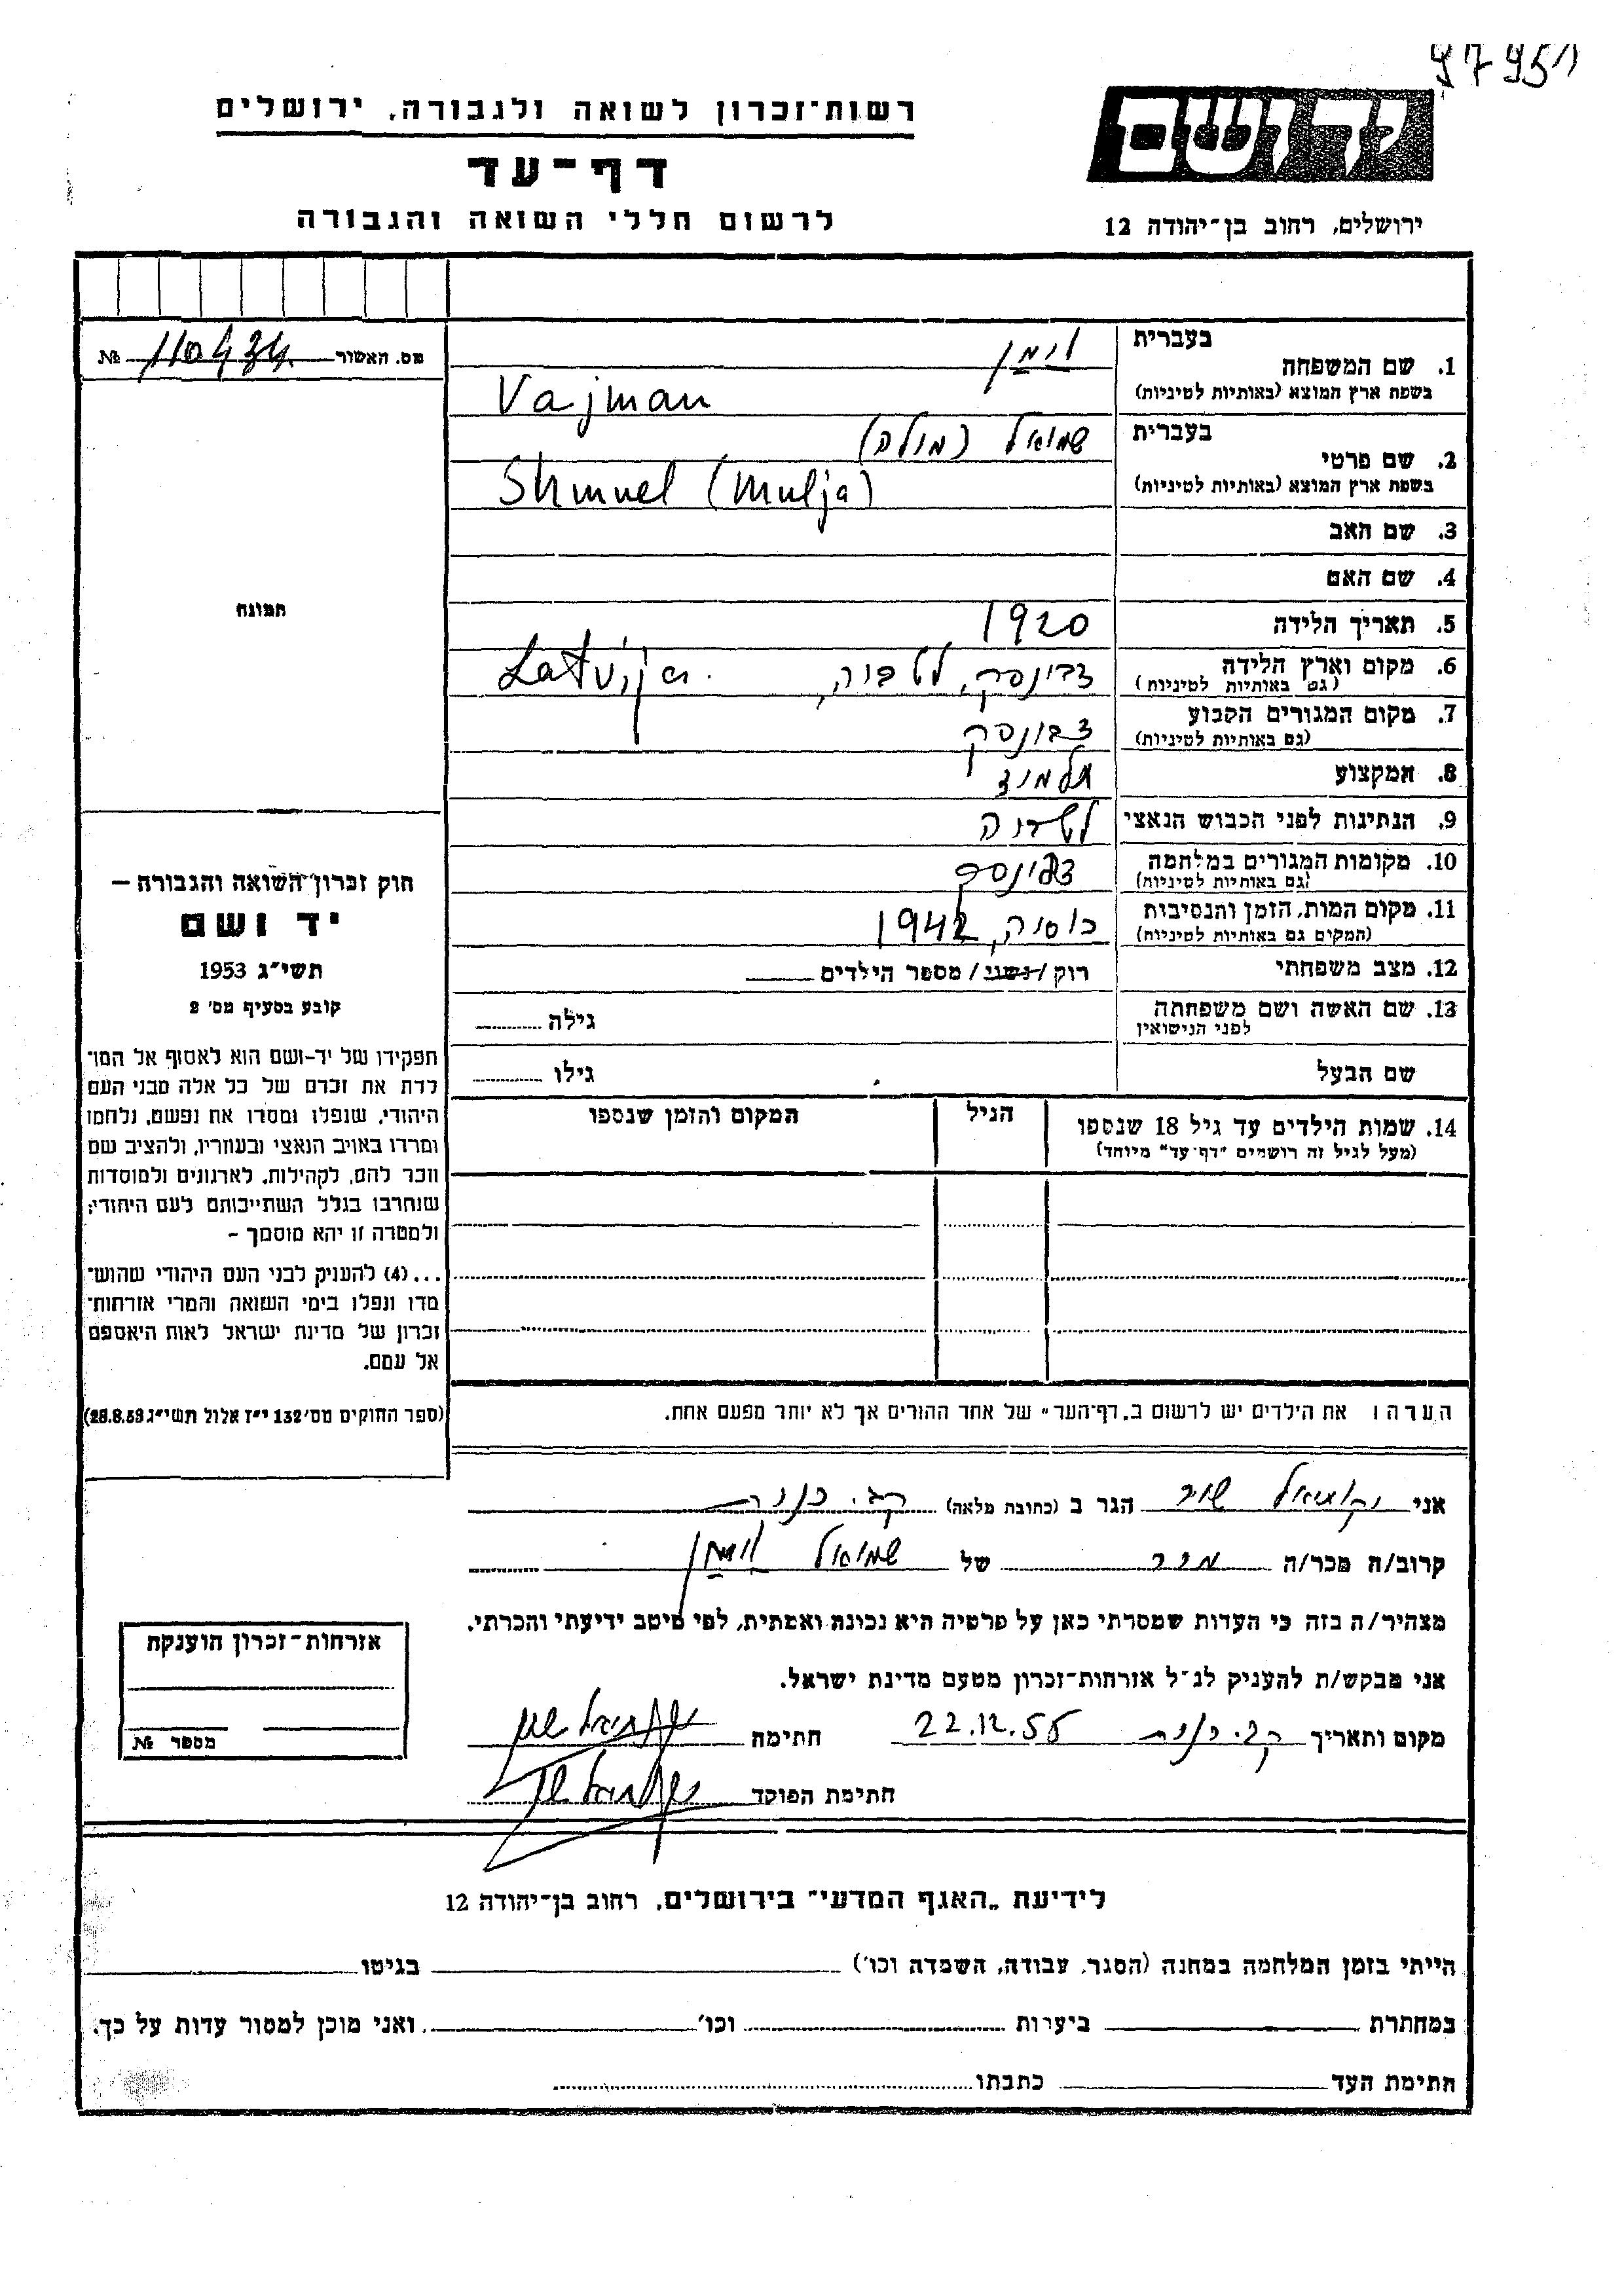 97951
רשות־זכרון לשואה ולגבורה, ירושלים
יד ושם
דף־עד
לרשום חללי השואה והגבורה
ירושלים, רחוב בן־יהודה 12
מס. האשור 110434 №
1. שם המשפחה בעברית וימן
בשפת ארץ המוצא (באותיות לטיניות) Vajman
2. שם פרטי בעברית שמואל (מולה)
בשפת ארץ המוצא (באותיות לטיניות) Shmuel (Mulja)
3. שם האב
4. שם האם
תמונה
5. תאריך הלידה 1920
6. מקום וארץ הלידה (גם באותיות לטיניות) דבינסק, לטביה, Latvija.
7. מקום המגורים הקבוע (גם באותיות לטיניות) דבינסק
8. המקצוע תלמיד
9. הנתינות לפני הכבוש הנאצי לטביה
10. מקומות המגורים במלחמה (גם באותיות לטיניות) דבינסק
11. מקום המות, הזמן והנסיבות (המקום גם באותיות לטיניות) רוסיה, 1942
12. מצב משפחתי רוק / נשוי / מספר הילדים
13. שם האשה ושם משפחתה לפני הנישואין גילה
שם הבעל גילו
14. שמות הילדים עד גיל 18 שנספו הגיל המקום והזמן שנספו
(מעל לגיל זה רושמים "דף־עד" מיוחד)
חוק זכרון השואה והגבורה —
יד ושם
תשי"ג 1953
קובע בסעיף מס' 2
תפקידו של יד־ושם הוא לאסוף אל המו־
לדת את זכרם של כל אלה מבני העם
היהודי, שנפלו ומסרו את נפשם, נלחמו
ומרדו באויב הנאצי ובעוזריו, ולהציב שם
וזכר להם, לקהילות, לארגונים ולמוסדות
שנחרבו בגלל השתייכותם לעם היהודי;
ולמטרה זו יהא מוסמך –
...(4) להעניק לבני העם היהודי שהוש־
מדו ונפלו בימי השואה והמרי אזרחות־
זכרון של מדינת ישראל לאות היאספם
אל עמם.
(ספר החוקים מס' 132 י"ז אלול תשי"ג 28.8.53)
הערה: את הילדים יש לרשום ב„דף־העד" של אחד ההורים אך לא יותר מפעם אחת.
אני הגר ב (כתובת מלאה) קב. כנרת
קרוב/ה מכר/ה מכר של שמואל וימן
מצהיר/ה בזה כי העדות שמסרתי כאן על פרטיה היא נכונה ואמתית, לפי מיטב ידיעתי והכרתי.
אני מבקש/ת להעניק לנ"ל אזרחות־זכרון מטעם מדינת ישראל.
מקום ותאריך קב. כנרת 22.12.55 חתימה
חתימת הפוקד
אזרחות־זכרון הוענקה
מספר №
לידיעת „האגף המדעי" בירושלים, רחוב בן־יהודה 12
הייתי בזמן המלחמה במחנה (הסגר, עבודה, השמדה וכו') בגיטו
במחתרת ביערות וכו' ואני מוכן למסור עדות על כך.
חתימת העד כתבתו